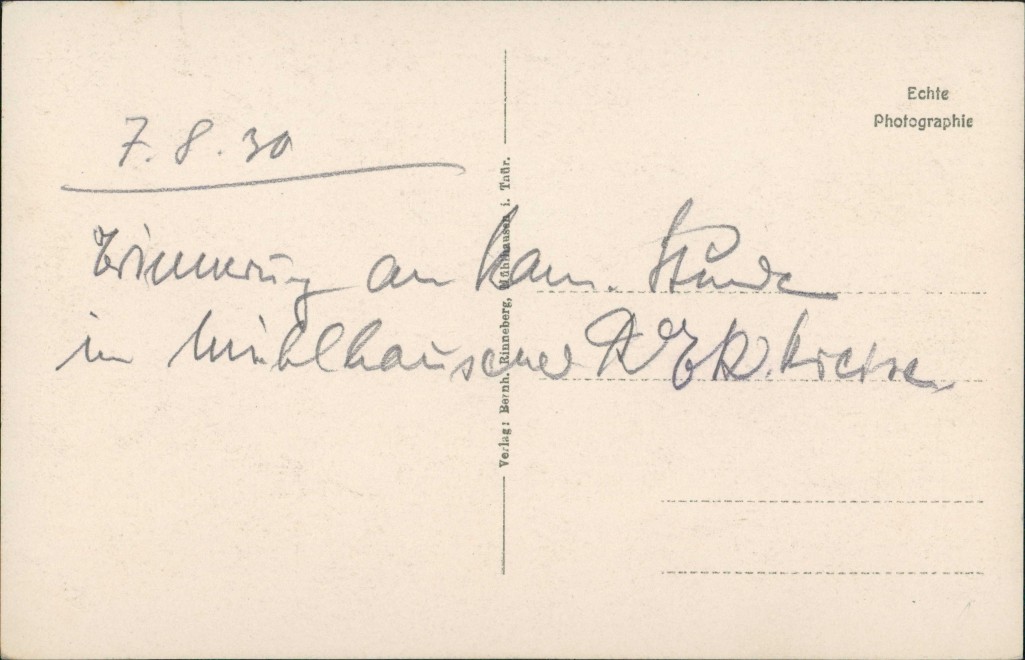 7. 8. 30
Erinnerung an kam. Stunde
in Mühlhausener Kreise
Echte
Photographie
Verlag: Bernh. Rinneberg, Mühlhausen i. Thür.